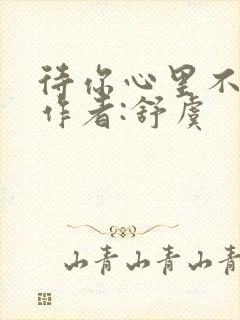 待你心里不
作者:舒虞
山青山青山青